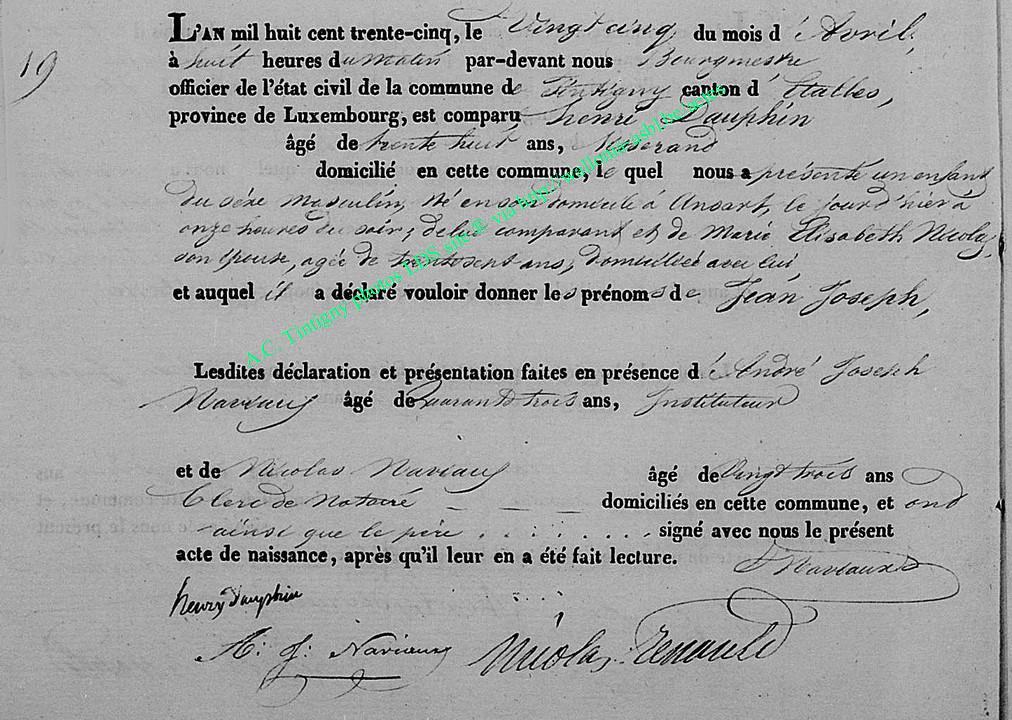 19
L'AN mil huit cent trente-cinq, le Vingt cinq du mois d'Avril,
à huit heures du matin par-devant nous Bourgmestre
officier de l'état civil de la commune de Tintigny canton d'Etalles,
province de Luxembourg, est comparu henri Dauphin
âgé de trente huit ans, tisserand
domicilié en cette commune, le quel nous a présenté un enfant
du séxe masculin, né en son domicile à Ansart, le jour d'hier à
onze heures du soir, de lui comparant et de Marie Elisabeth Nicolas,
son épouse, agée de trentesept ans, domiciliée avec lui,
et auquel il a déclaré vouloir donner les prénoms de Jean Joseph,
Lesdites déclaration et présentation faites en présence d'André Joseph
Naviaux âgé de Quarante trois ans, Instituteur
et de Nicolas Naviaux âgé de Vingt trois ans
Clerc de Notaire domiciliés en cette commune, et ont
ainsi que le père signé avec nous le présent
acte de naissance, après qu'il leur en a été fait lecture.
Naviaux
henry dauphin
A: J: Naviaux Nicolas
A.C. Tintigny photos LDS site © via http://wallonia.asbl.be.actes